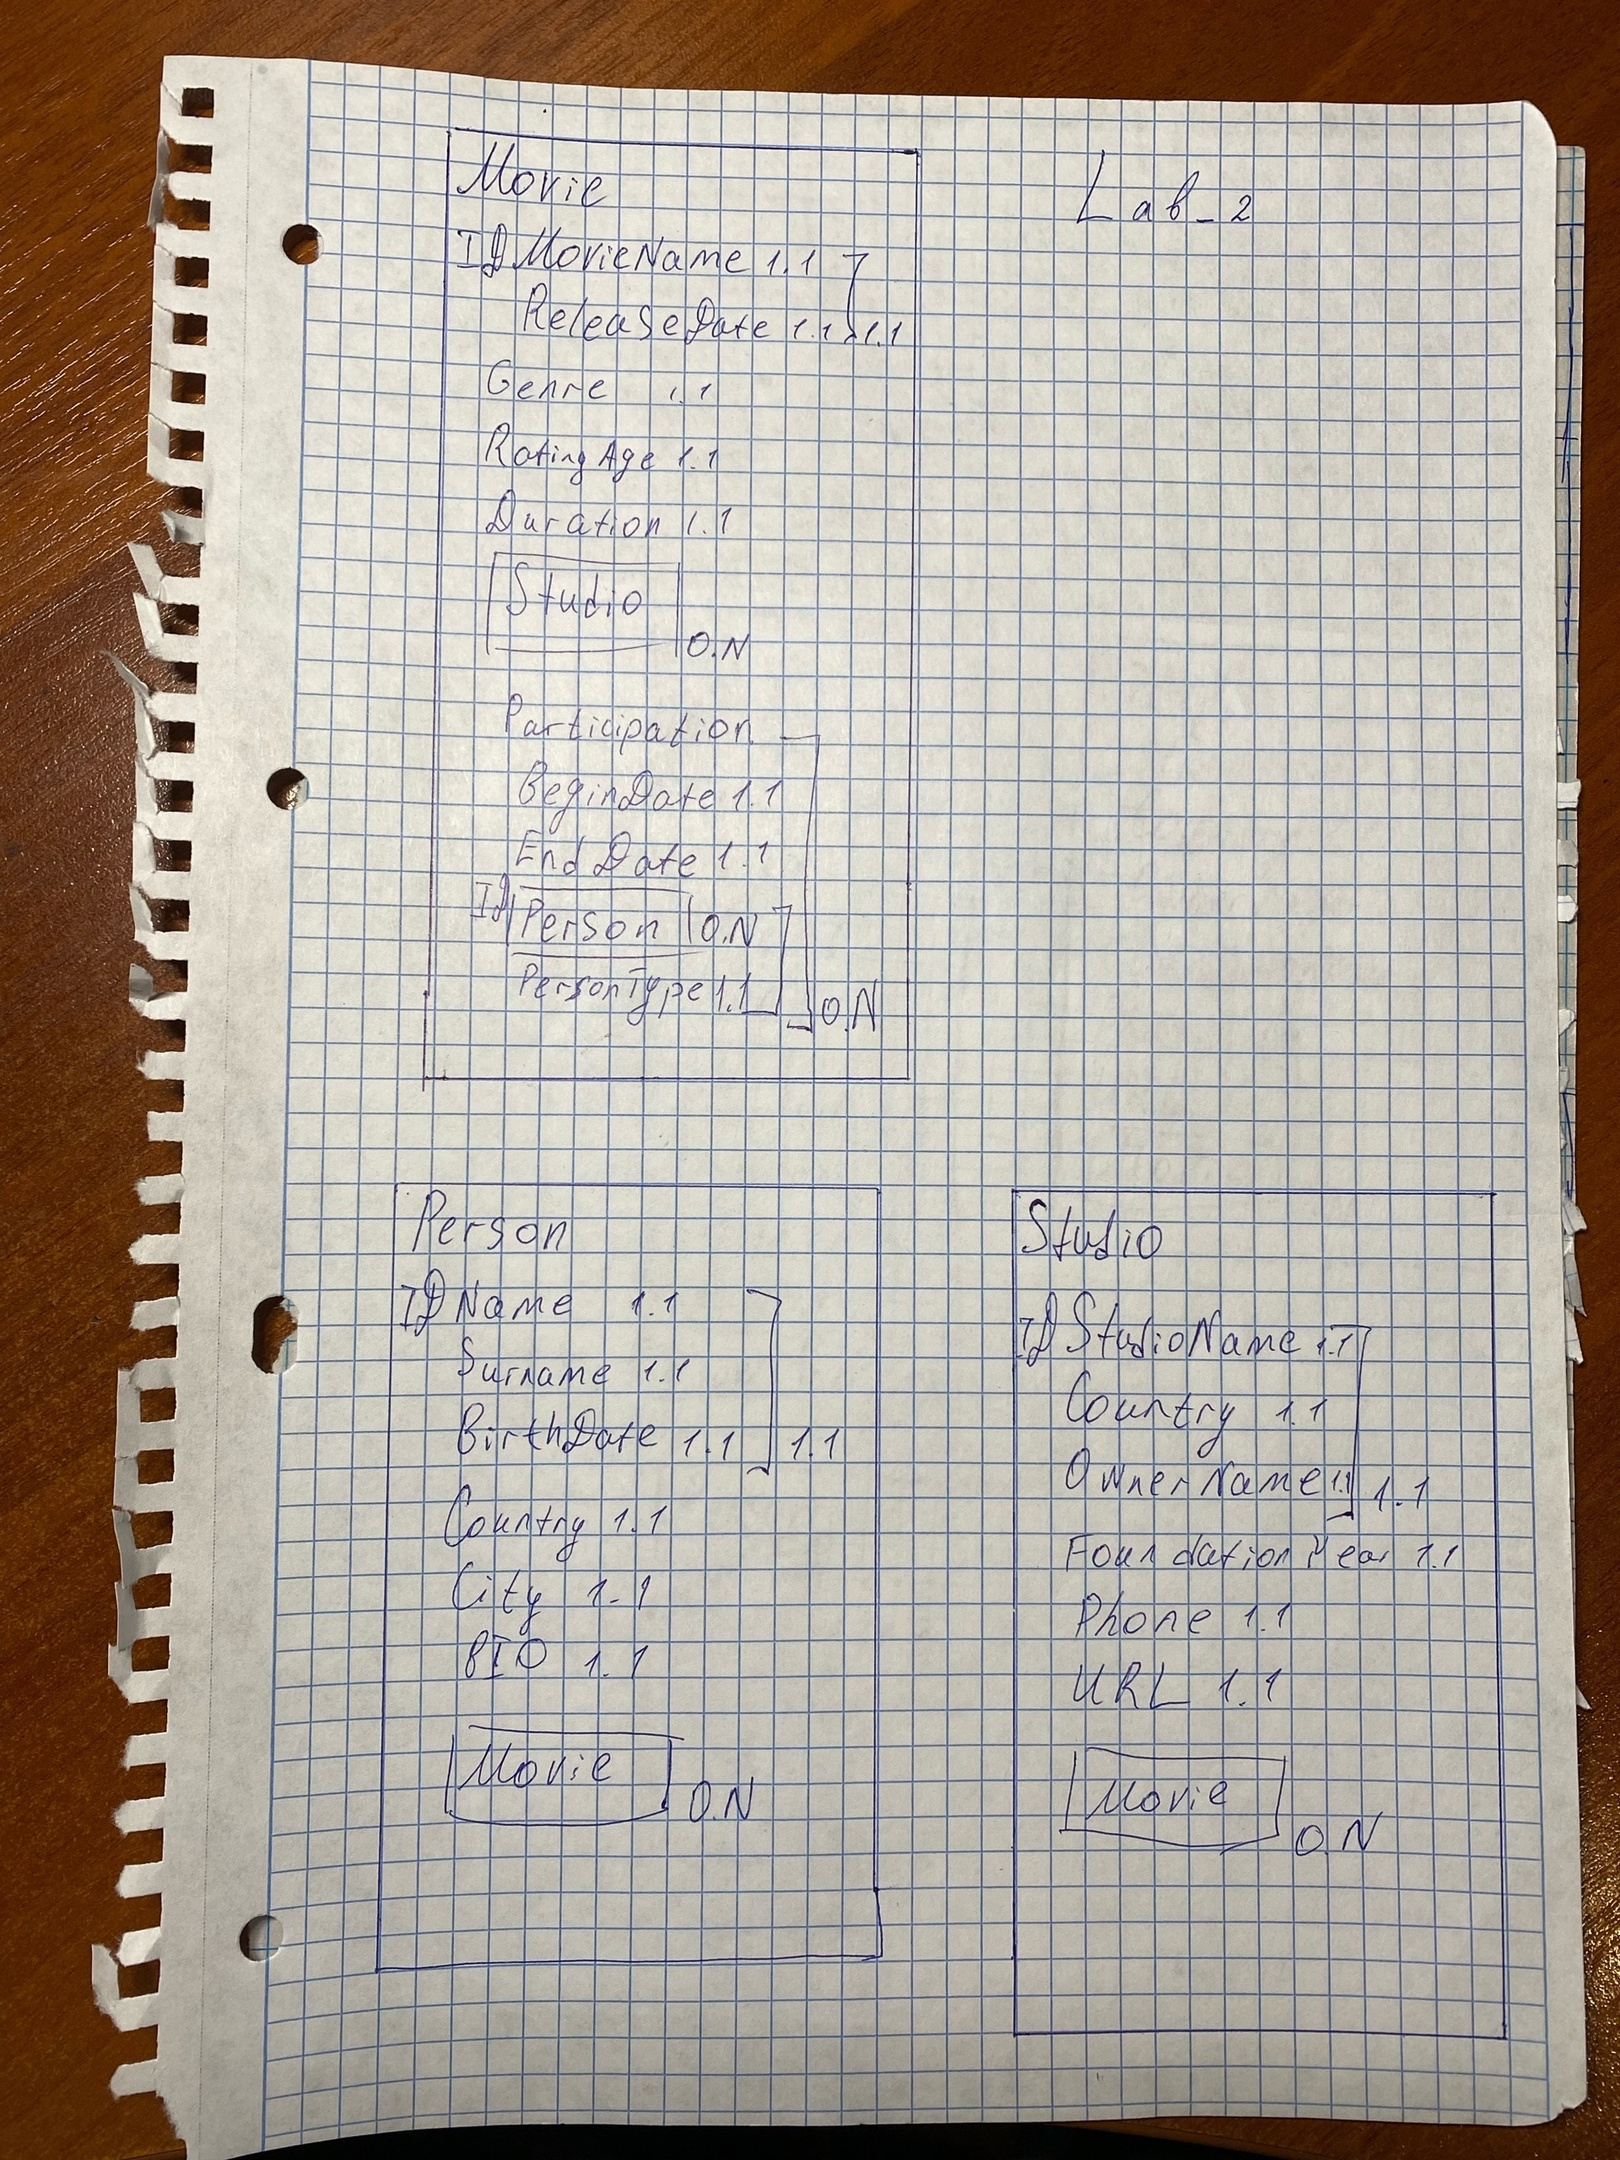 Lab_2
Movie
ID MovieName 1.1
ReleaseDate 1.1 1.1
Genre 1.1
RatingAge 1.1
Duration 1.1
Studio O.N
Participation
BeginDate 1.1
EndDate 1.1
ID Person O.N
PersonType 1.1 O.N
Person
ID Name 1.1
Surname 1.1
BirthDate 1.1 1.1
Country 1.1
City 1.1
BIO 1.1
Movie O.N
Studio
ID StudioName 1.1
Country 1.1
OwnerName 1.1 1.1
Foundation Year 1.1
Phone 1.1
URL 1.1
Movie O.N